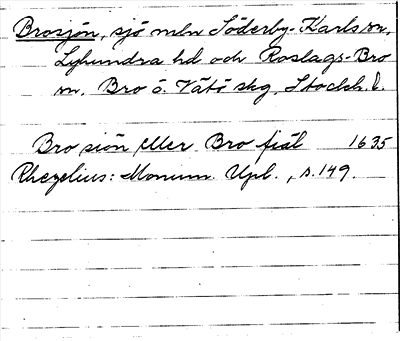 Brosjön, sjö mln Söderby-Karls sn,
Lyhundra hd och Roslags-Bro
sn. Bro o. Vätö skg, Stockh. l.
Bro siön eller Bro fiäl 1635
Rhezelius: Monum. Upl., s. 149.